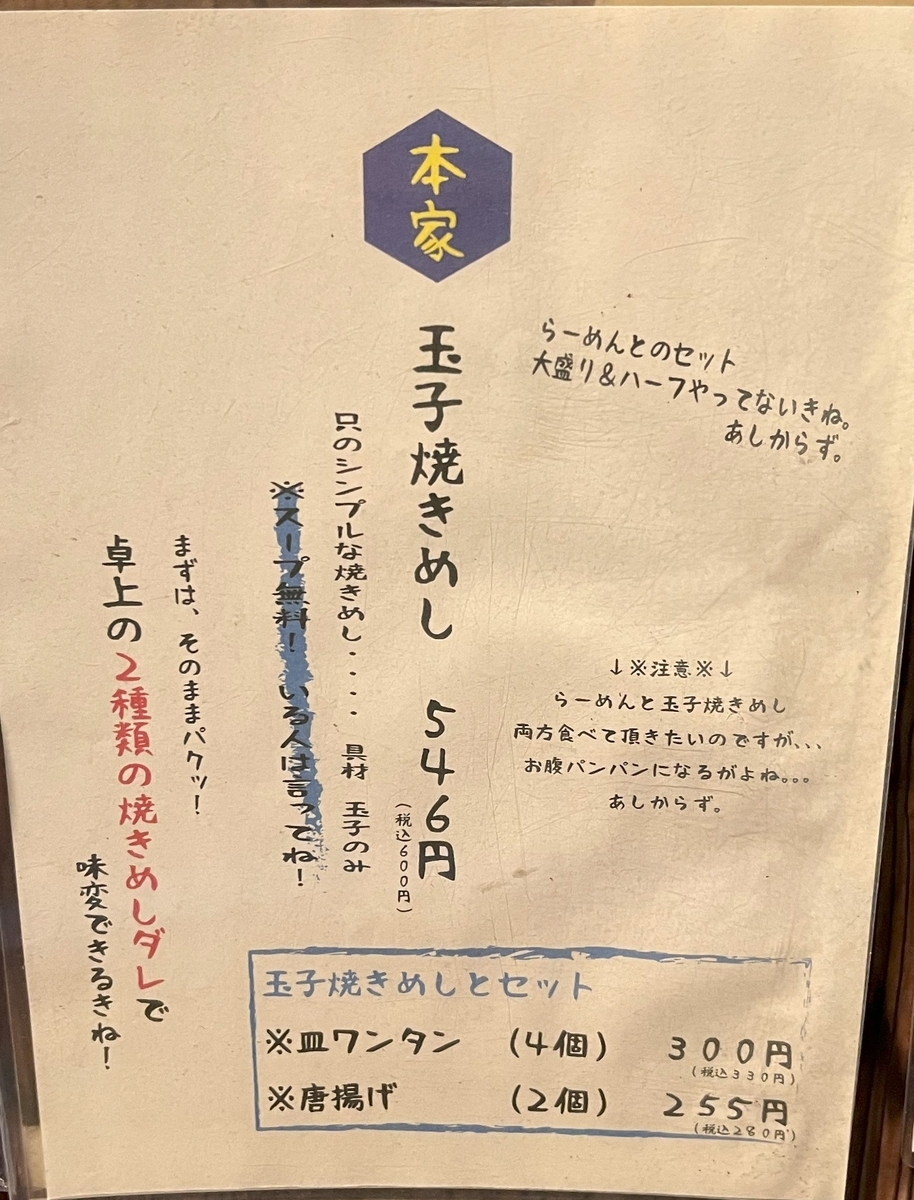 本家
らーめんとのセット
大盛り&ハーフやってないきね。
あしからず。
玉子焼きめし 546円
(税込600円)
只のシンプルな焼きめし・・・・ 具材 玉子のみ
※スープ無料! いる人は言ってね!
まずは、そのままパクッ!
卓上の2種類の焼きめしダレで
味変できるきね!
↓※注意※↓
らーめんと玉子焼きめし
両方食べて頂きたいのですが、、、
お腹パンパンになるがよね。。。
あしからず。
玉子焼きめしとセット
※皿ワンタン (4個) 300円
(税込330円)
※唐揚げ (2個) 255円
(税込280円)